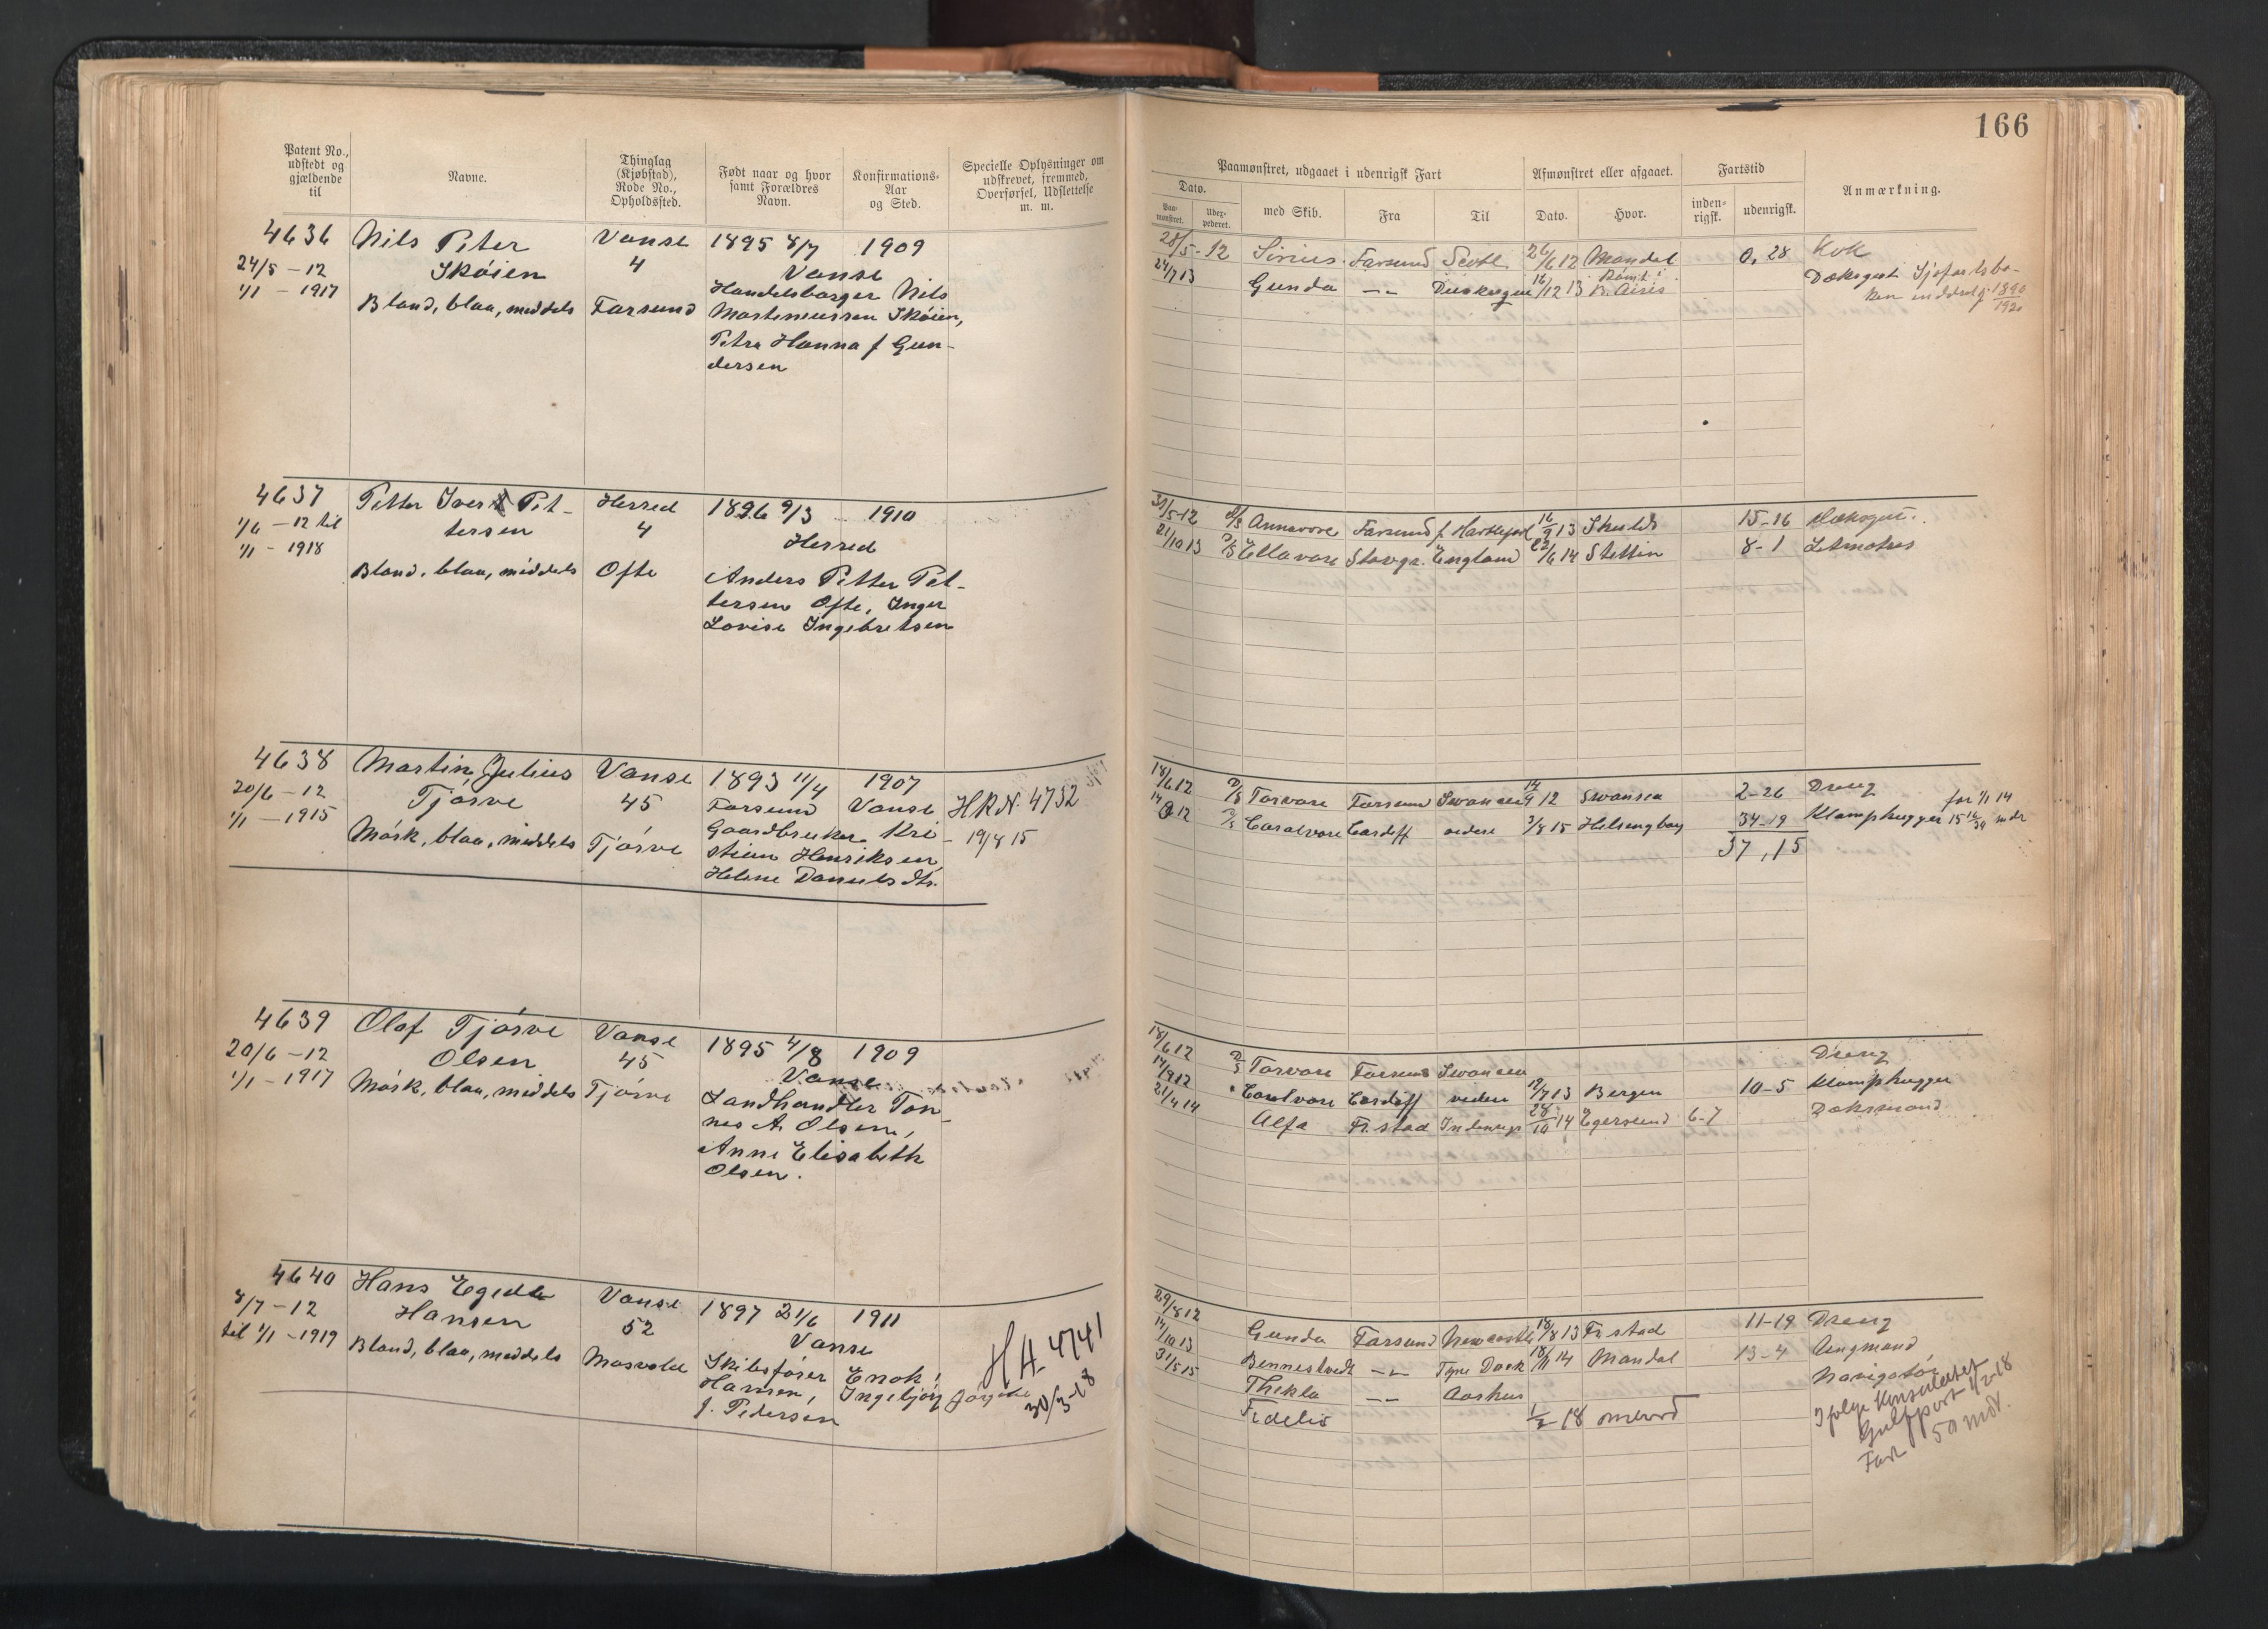 166
Patent No., udstedt og gjældende til
Navne.
Thinglag (Kjøbstad), Rode No., Opholdssted.
Født naar og hvor samt Forældres Navn.
Konfirmations-Aar og Sted.
Specielle Oplysninger om udskrevet, fremmed, Overførsel, Udslettelse m. m.
Paamønstret, udgaaet i udenrigsk Fart
Afmønstret eller afgaaet.
Fartstid
Anmærkning.
Dato.
Paa-mønstret.
Udex-pederet.
med Skib.
Fra
Til
Dato.
Hvor.
inden-rigsk.
udenrigsk.
4636 Nils Peter Vanse 1895 8/7 1909
24/5 - 12 Skøien 4 Vanse
1/1 - 1917 Handelsborger Nils
Blond, blaa, middels Farsund Martinussen Skøien,
Petra Hanna f Gun-
dersen
28/5-12 Sirius Farsund Scotl 26/6 12 Mandal 0,28 Kok
24/7 13 Gunda -"- 16/12 13 B. Aires Dæksgut
4637 Petter Iver Pet- Herred 1896 9/3 1910
1/6 - 12 til tersen 4 Herred
1/1 - 1918
Blond, blaa, middels Ofte Anders Petter Pet-
tersen Ofte, Inger
Lovise Ingebretsen
30/5-12 D/S Annavore Farsund f. Hartlepool 16/9 13 Shields 15-16 Dæksgut.
21/10 13 D/S Ellavore Stavgr. England 22/6 14 Stettin 8-1 Letmatros
4638 Martin Julius Vanse 1893 11/4 1907
20/6 - 12 Tjørve 45 Farsund Vanse HR N. 4732
1/1 - 1915 Gaardbruker Kri- 19/8 15
Mørk, blaa, middels Tjørve stian Henriksen,
Helene Danielsdtr.
18/6 12 D/S Torvore Farsund Swansea 14/9 12 Swansea 2-26 Dreng
14/9 12 D/S Coralvore Cardiff videre 3/8 15 Helsingborg 34-19 Klamphugger for 1/1 14
37,15
4639 Olaf Tjørve Vanse 1895 4/8 1909
20/6 - 12 Olsen 45 Vanse
1/1 - 1917 Mørk, blaa, middels Tjørve Landhandler Tøn-
nes A. Olsen,
Anne Elisabeth
Olsen.
18/6 12 D/S Torvore Farsund Swansea Dreng
14/9 12 " Coralvore Cardiff videre 12/7 13 Bergen 10-5 Klamphugger
21/4 14 Alfa Fr.stad Indenrigs 28/10 14 Egersund 6-7 Dæksmand
4640 Hans Egede Vanse 1897 21/6 1911
8/7 - 12 Hansen 52 Vanse
til 1/1 - 1919 Blond, blaa, middels Mosvold Skibsfører Enok
Hansen, Ingebjørg
J. Pedersen
HA 4741
30/3-18
29/8 12 Gunda Farsund Newcastle 18/8 13 Fr.stad 11-19 Dreng
14/10 13 Bennestvedt -"- Tyne Dock 18/11 14 Mandal 13-4 Ungmand
31/5 15 Thekla -"- Aarhus Navigatør
Fidelis 1/2-18 ombord
Ifølge Konsulatet
Gulfport 1/2-18
Fart 50 mdr.